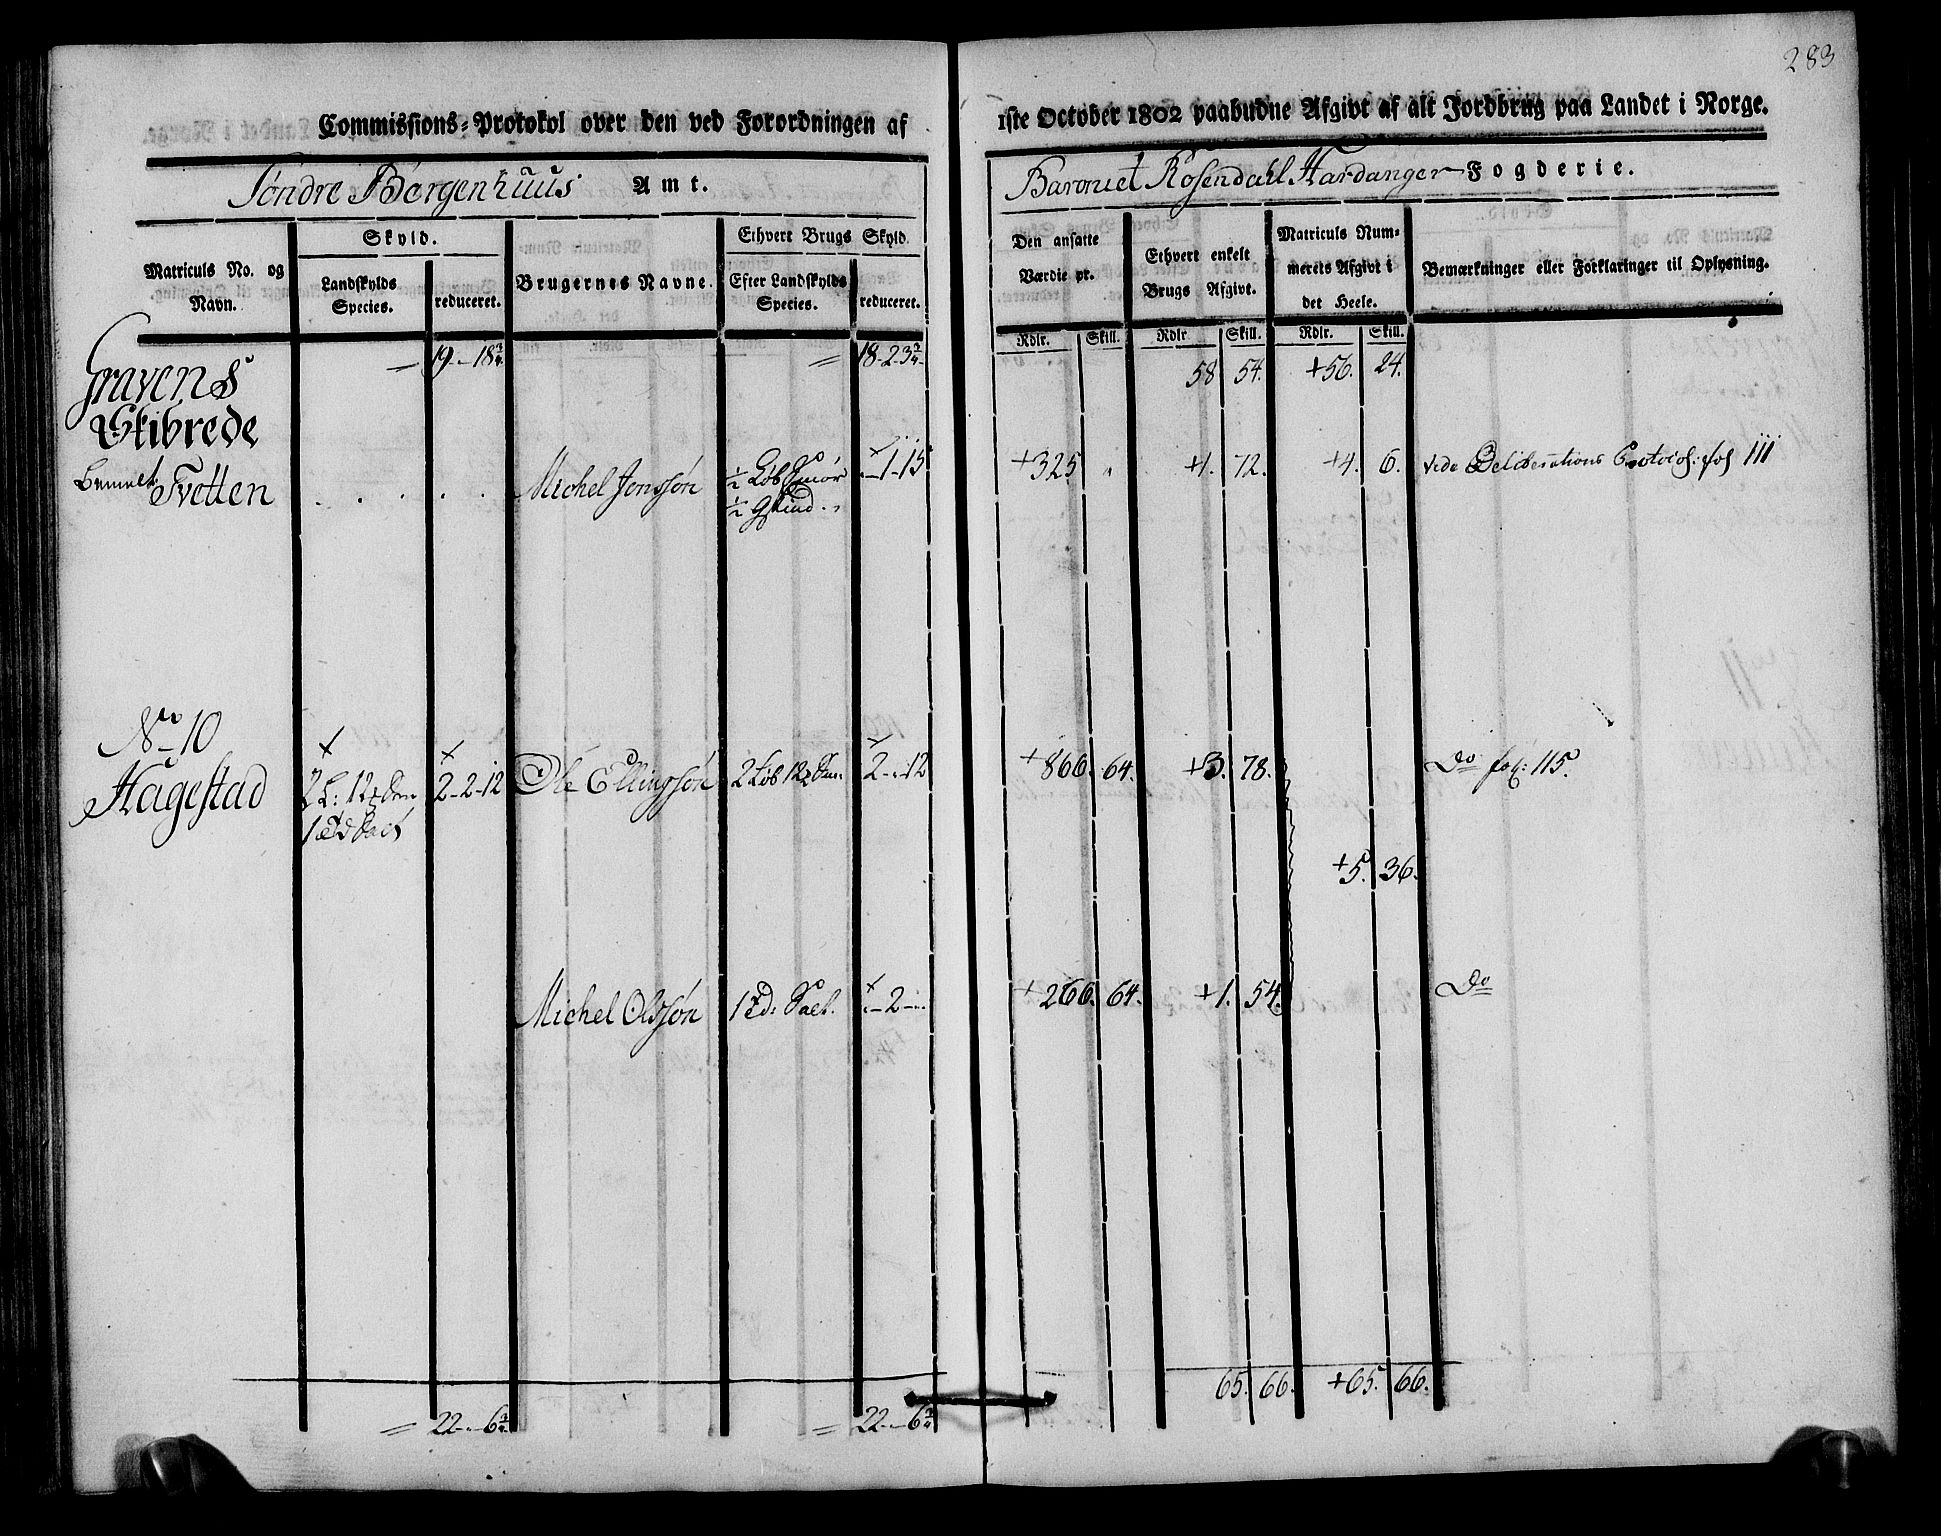 283
Commissions-Protokol over den ved Forordningen af 1ste October 1802 paabudne Afgivt af alt Jordbrug paa Landet i Norge.
Søndre Bergenhuus Amt. Baroniet Rosendahl Hardanger Fogderie.
Matriculs No. og Navn.
Skyld.
Landskylds Species.
reduceret.
Brugernes Navne.
Ethvert Brugs Skyld.
Efter Landskylds Species.
reduceret.
Den ansatte Værdie pr.
Ethvert enkelt Brugs Afgivt.
Matriculs Nummerets Afgivt i det Heele.
Bemærkninger eller Forklaringer til Oplysning.
Rdlr. Skill. Rdlr. Skill. Rdlr. Skill.
Gravens = 19 - „ - 18 3/4 = 18 - 2 - 3 3/4 58 54. +56. 24.
Skibrede
Bemelt Tvetten . . . . . Michel Jonssøn 1/2 Løb Smør - 1 - 15 +325 „ +1. 72. +4. 6. vide Deliberations Protocol: fol 111
1/2 Gskind
No 10
Hagestad 2 L: 12 2-2-12 Ole Ellingssøn 2 Løb 12 2 - „ - 12 +866. 64. +3. 78. Do fol: 115.
1 Td Salt
+5. 36.
Michel Olssøn 1 Td: Salt. „ - 2 - „ +266. 64. +1. 54. Do
65. 66. +65. 66.
= 22 - „ - 6 3/4 = 22 - „ - 6 3/4